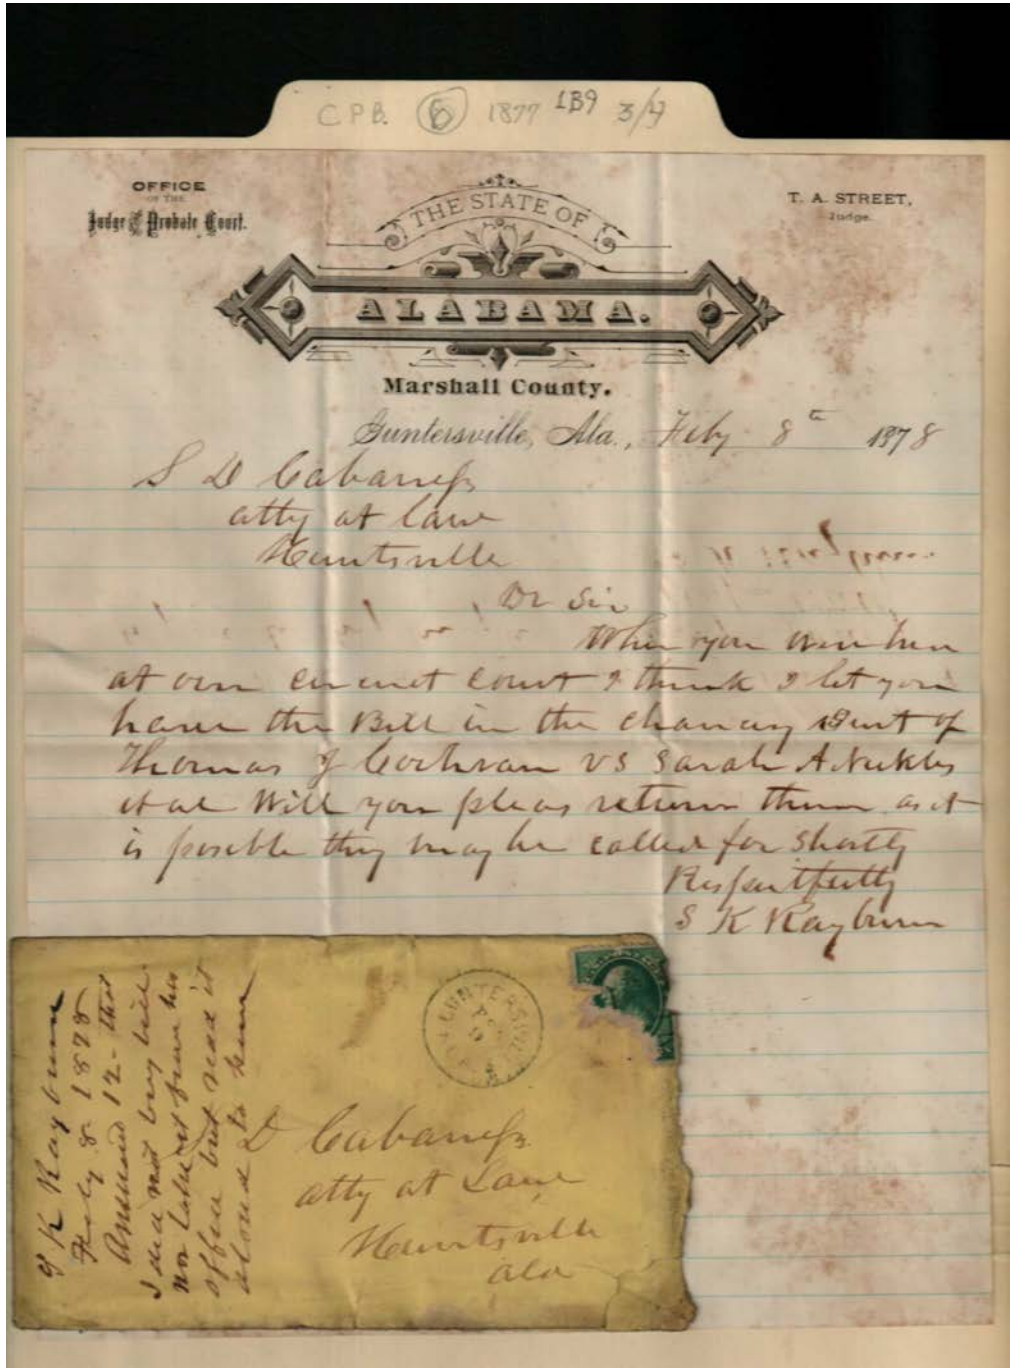 C.P.B. 6 1877 1B9 3/4
OFFICE
OF THE
Judge of the Probate Court.
THE STATE OF
ALABAMA.
T. A. STREET,
Judge.
Marshall County.
Guntersville, Ala., Feby 8th 1878
S D Cabaness
atty at Law
Huntsville
Dr Sir
When you were here
at our circuit court I think I let you
have the Bill in the chancy of
Thomas J Cochran vs Sarah A Nuckles
et al Will you pleas return them as it
is posible they may be called for shortly
Respectfully
S K Rayburn
S K Rayburn
Feby 8 1878
Answered 12 - that
I did not bring bill
nor take it from his
office but read it
aloud to him
GUNTERSVILLE
D Cabaness
atty at Law
Huntsville
Ala